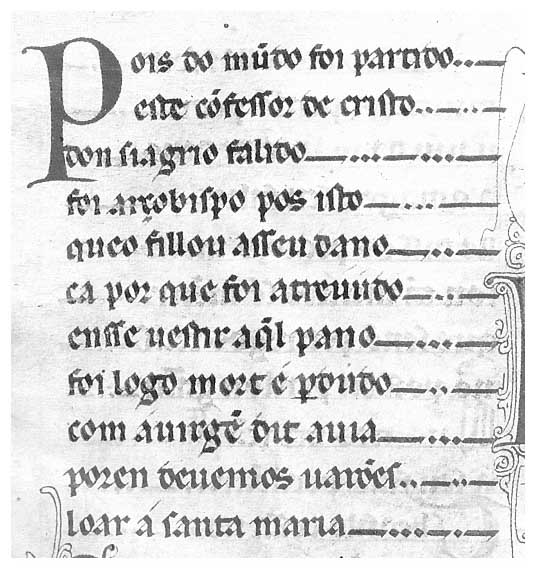 Pois do mũdo foi partido
este cõfessor de cristo
don siagrio falido
foi arçobispo pos isto
queo fillou asseu dano
ca por que foi atreuudo
ensse uestir aq̃l pano
foi logo mort é ꝑdudo
com áuirgẽ dit auia
poren deuemos uarões
loar á santa maria